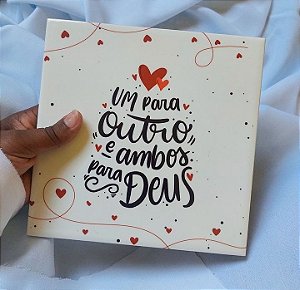 UM PARA
Outro
e ambos
PARA DEUS